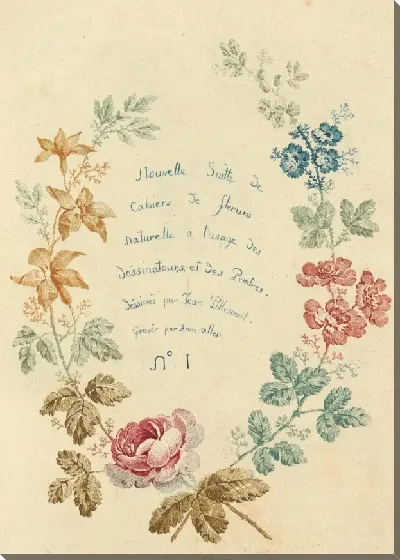 Nouvelle Suitte de
Cahiers De fleurs
Naturelle a l'usage des
Dessinateurs et des Peintres.
Dessiné par Jean Pillement.
Gravés par Anne Allen
N° 1